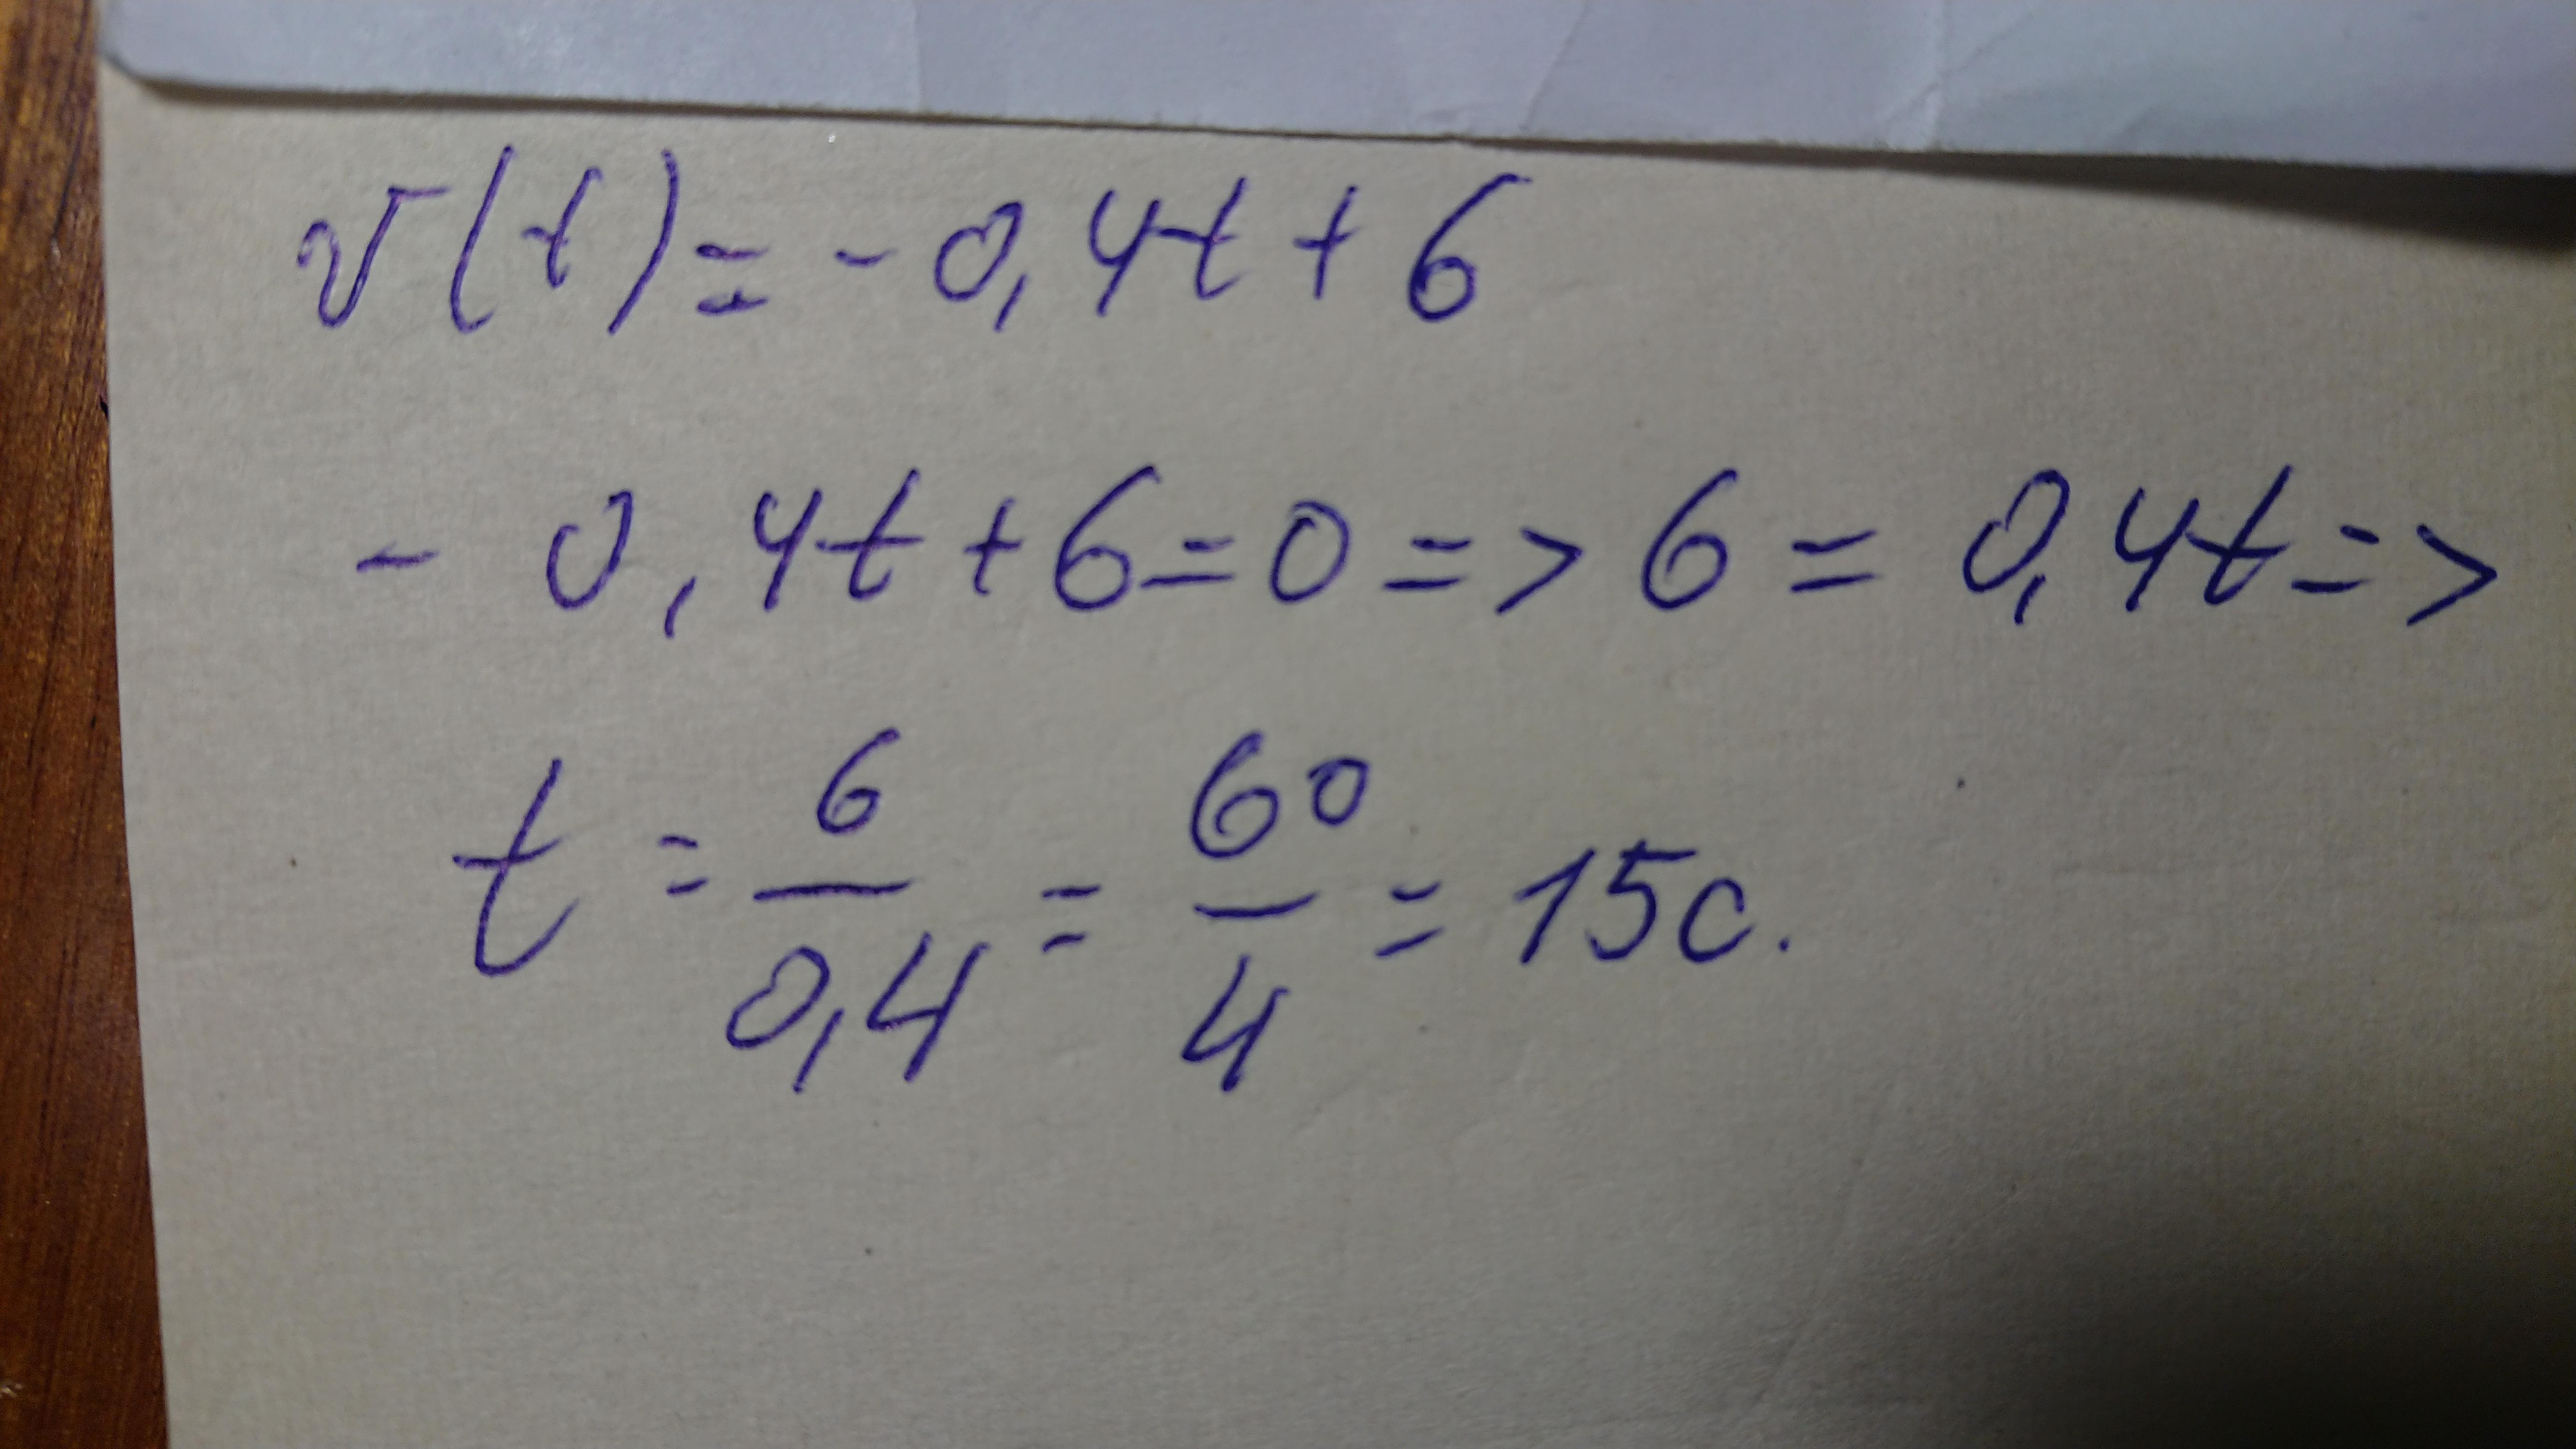 v(t) = - 0,4t + 6
- 0,4t + 6 = 0 => 6 = 0,4t =>
t = 6/0,4 = 60/4 = 15с.